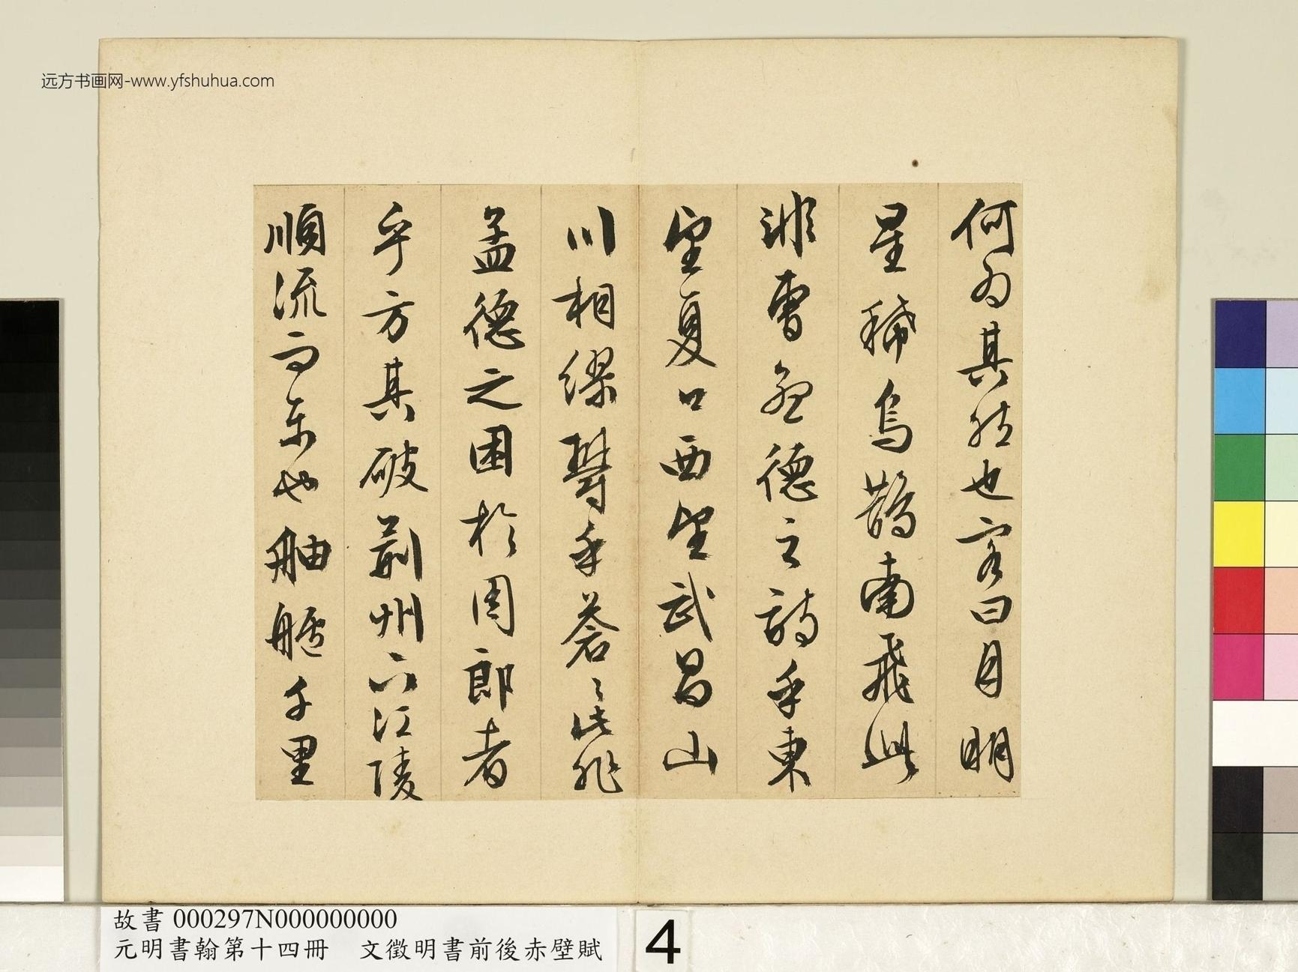 远方书画网-www.yfshuhua.com
何為其然也客曰月明
星稀烏鵲南飛此
非曹孟德之詩乎東
望夏口西望武昌山
川相繆鬱乎蒼々此非
孟德之困於周郎者
乎方其破荊州下江陵
順流而東也舳艫千里
故書 000297N000000000
元明書翰第十四冊 文徵明書前後赤壁賦
4